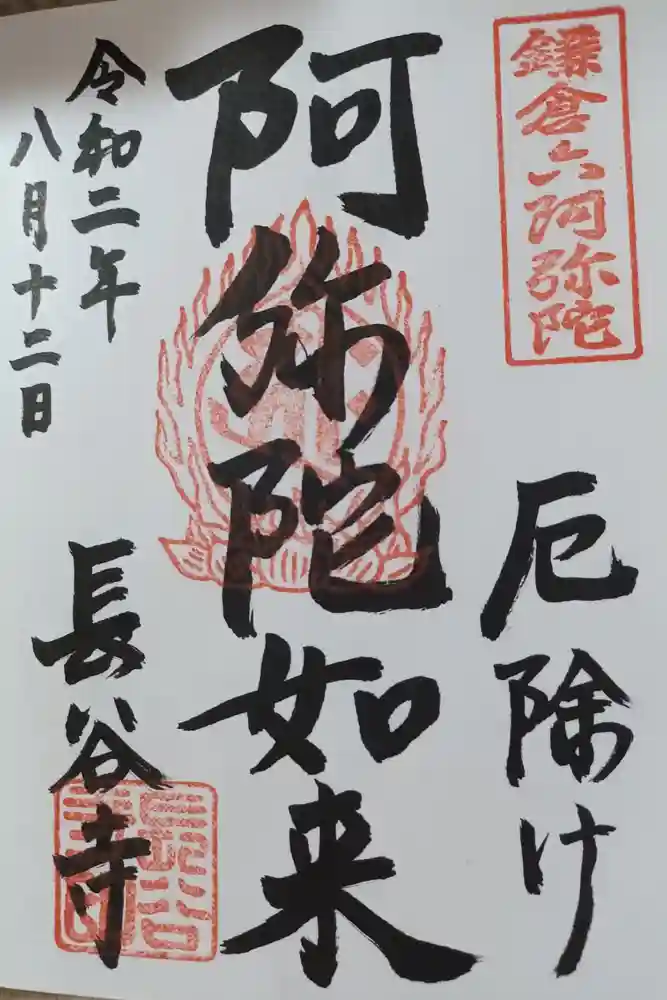 鎌倉六阿弥陀
厄除け
阿弥陀如来
令和二年
八月十二日
長谷寺